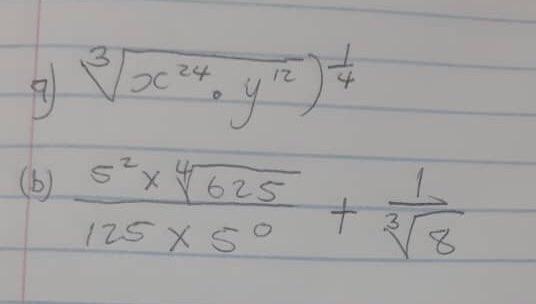 a) ∛(x²⁴ · y¹²))^(1/4)
(b) (5² × ∜625)/(125 × 5⁰) + 1/∛8